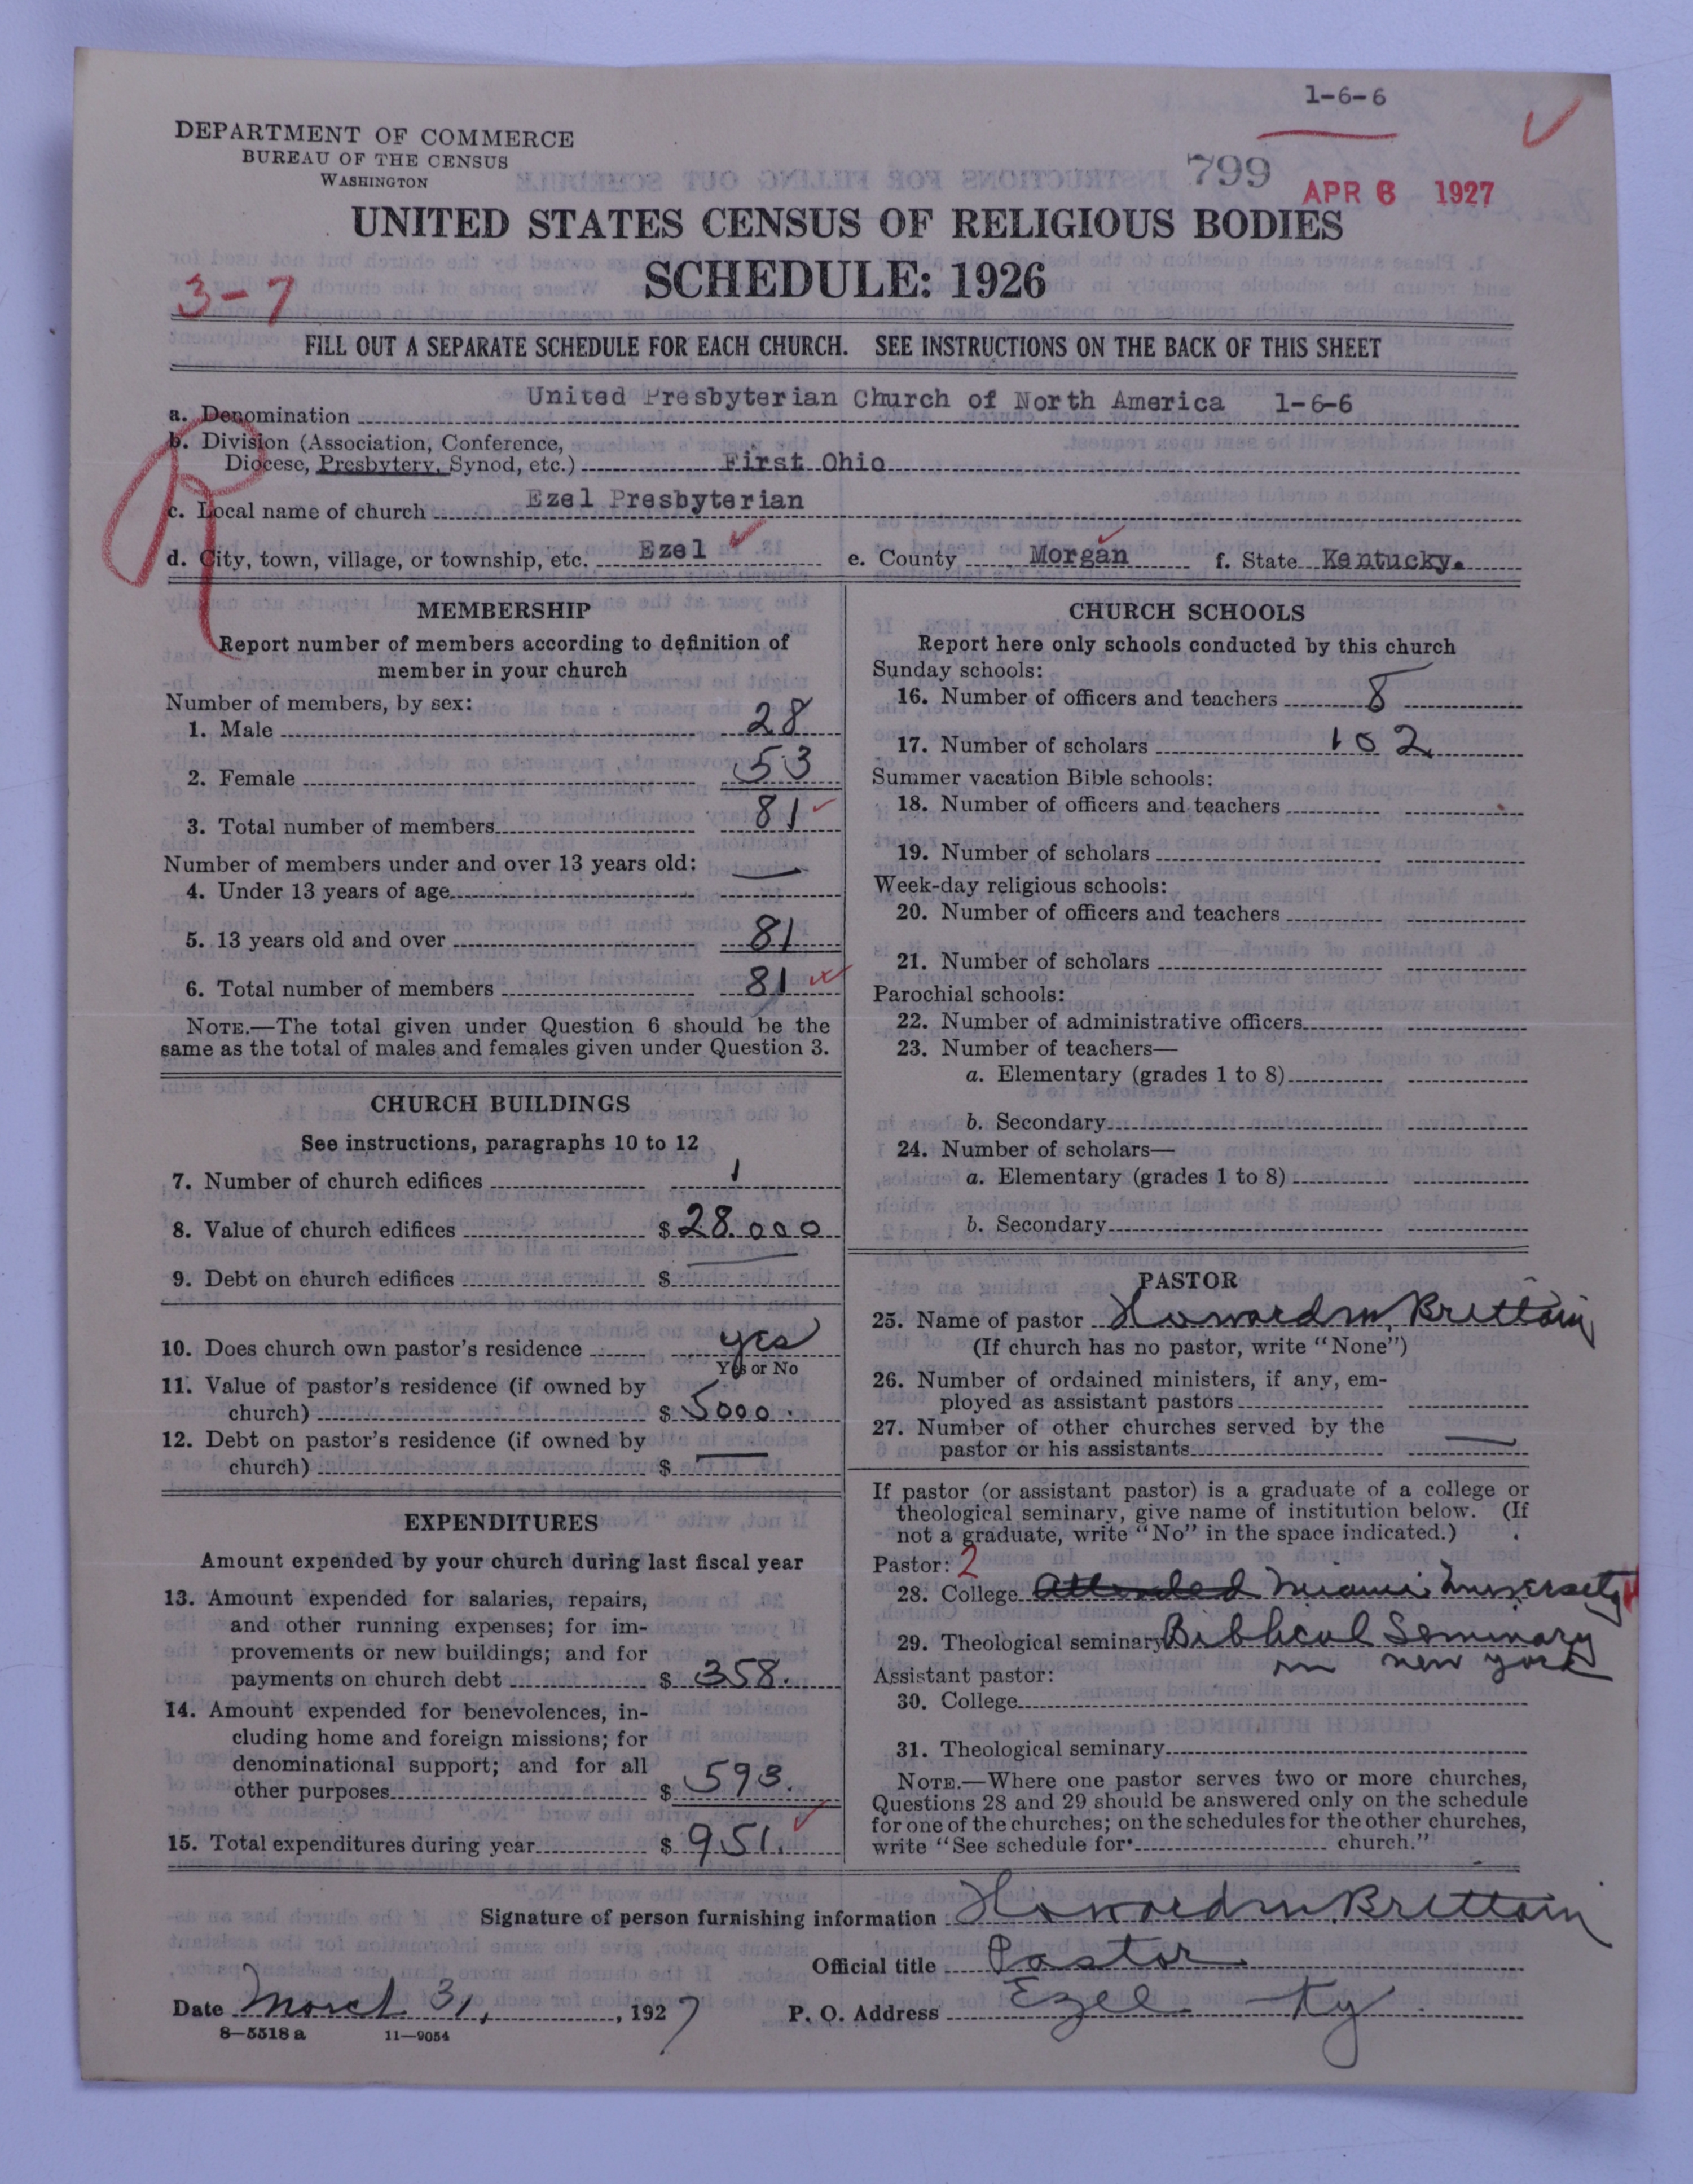 1-6-6
DEPARTMENT OF COMMERCE
BUREAU OF THE CENSUS
WASHINGTON
799
APR 6 1927
UNITED STATES CENSUS OF RELIGIOUS BODIES
SCHEDULE: 1926
3-7
FILL OUT A SEPARATE SCHEDULE FOR EACH CHURCH. SEE INSTRUCTIONS ON THE BACK OF THIS SHEET
a. Denomination United Presbyterian Church of North America 1-6-6
b. Division (Association, Conference,
Diocese, Presbytery, Synod, etc.) First Ohio
R
c. Local name of church Ezel Presbyterian
d. City, town, village, or township, etc. Ezel e. County Morgan f. State Kentucky.
MEMBERSHIP
Report number of members according to definition of
member in your church
Number of members, by sex:
1. Male 28
2. Female 53
3. Total number of members 81
Number of members under and over 13 years old:
4. Under 13 years of age —
5. 13 years old and over 81
6. Total number of members 81
NOTE.—The total given under Question 6 should be the
same as the total of males and females given under Question 3.
CHURCH BUILDINGS
See instructions, paragraphs 10 to 12
7. Number of church edifices 1
8. Value of church edifices $ 28.000
9. Debt on church edifices $
10. Does church own pastor's residence yes
Yes or No
11. Value of pastor's residence (if owned by
church) $ 5000.
12. Debt on pastor's residence (if owned by
church) $ —
EXPENDITURES
Amount expended by your church during last fiscal year
13. Amount expended for salaries, repairs,
and other running expenses; for im-
provements or new buildings; and for
payments on church debt $ 358.
14. Amount expended for benevolences, in-
cluding home and foreign missions; for
denominational support; and for all
other purposes $ 593.
15. Total expenditures during year $ 951.
CHURCH SCHOOLS
Report here only schools conducted by this church
Sunday schools:
16. Number of officers and teachers 8
17. Number of scholars 102
Summer vacation Bible schools:
18. Number of officers and teachers
19. Number of scholars
Week-day religious schools:
20. Number of officers and teachers
21. Number of scholars
Parochial schools:
22. Number of administrative officers
23. Number of teachers—
a. Elementary (grades 1 to 8)
b. Secondary
24. Number of scholars—
a. Elementary (grades 1 to 8)
b. Secondary
PASTOR
25. Name of pastor Howard M. Brittain
(If church has no pastor, write "None")
26. Number of ordained ministers, if any, em-
ployed as assistant pastors
27. Number of other churches served by the
pastor or his assistants —
If pastor (or assistant pastor) is a graduate of a college or
theological seminary, give name of institution below. (If
not a graduate, write "No" in the space indicated.)
Pastor: 2
28. College Attended Miami University
29. Theological seminary Biblical Seminary
in New York
Assistant pastor:
30. College
31. Theological seminary
NOTE.—Where one pastor serves two or more churches,
Questions 28 and 29 should be answered only on the schedule
for one of the churches; on the schedules for the other churches,
write "See schedule for church."
Signature of person furnishing information Howard M. Brittain
Official title Pastor
Date March 31, 1927 P. O. Address Ezel Ky.
8-5518 a 11-9054